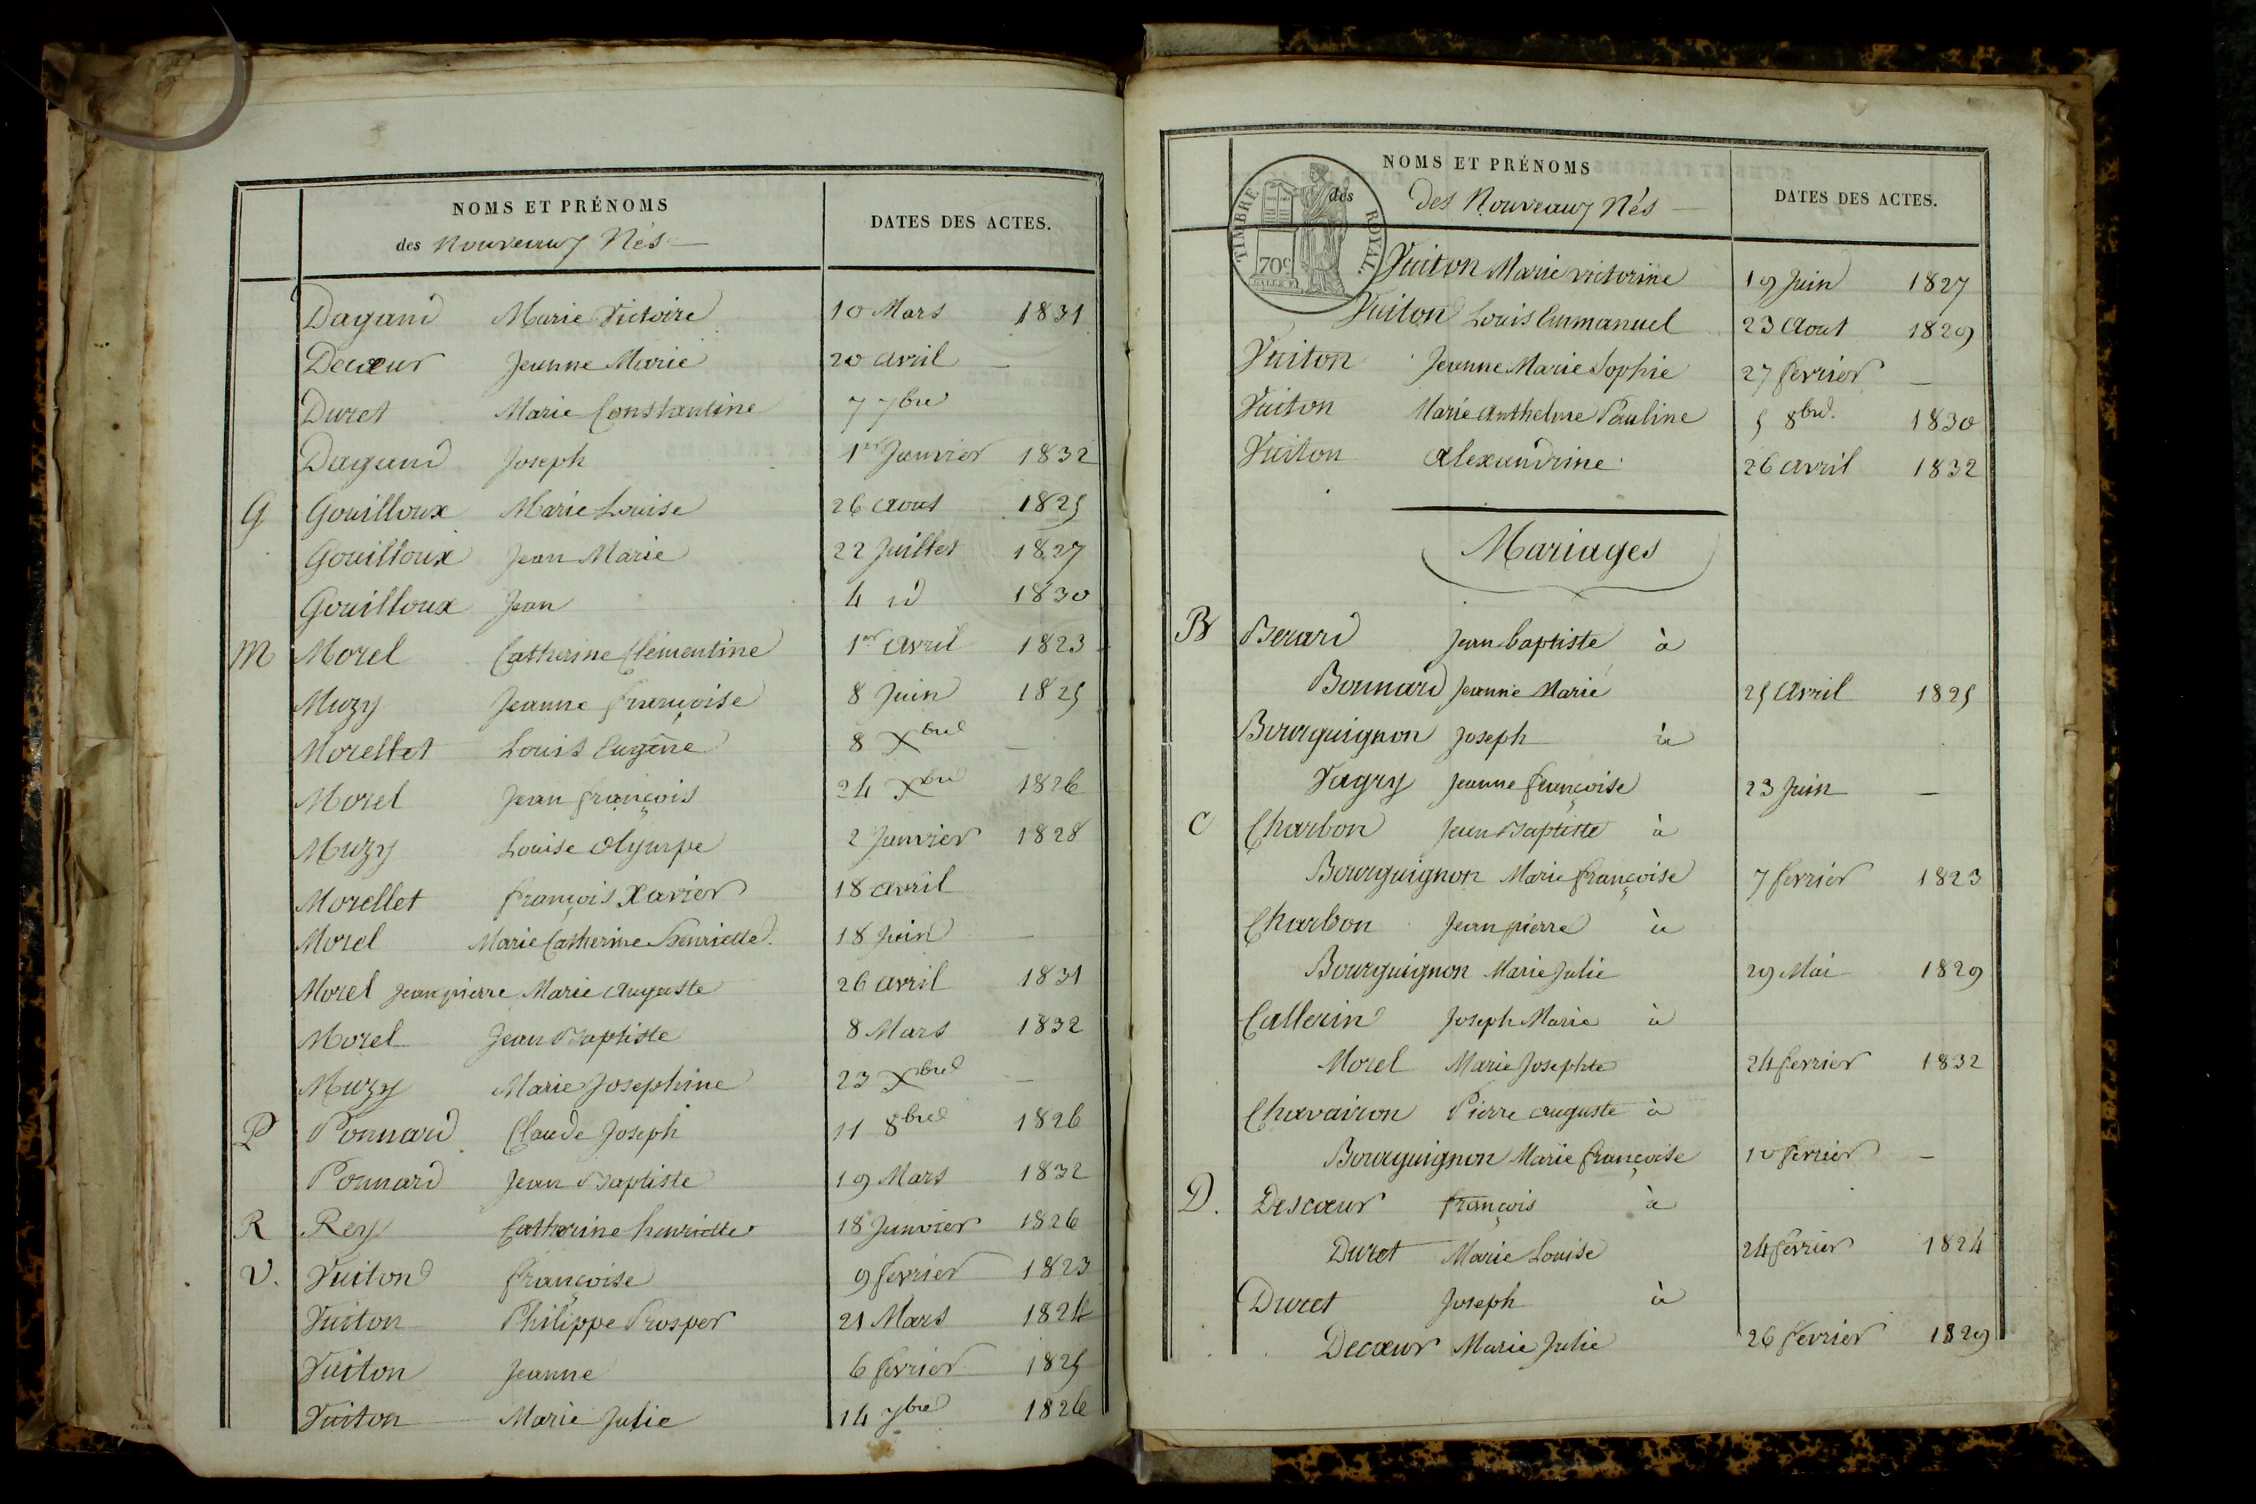 NOMS ET PRÉNOMS
des Nouveaux Nés
DATES DES ACTES.
Dagand Marie Victoire 10 Mars 1831
Decœur Jeanne Marie 20 avril —
Duret Marie Constantine 7 7bre
Dagand Joseph 1er Janvier 1832
G Gouilloux Marie Louise 26 aout 1825
Gouilloux Jean Marie 22 Juillet 1827
Gouilloux Jean 4 id 1830
M Morel Catherine Clémentine 1er avril 1823
Muzy Jeanne françoise 8 Juin 1825
Morellet Louis Eugêne 8 Xbre —
Morel Jean françois 24 Xbre 1826
Muzy Louise Olympe 2 Janvier 1828
Morellet françois Xavier 18 avril
Morel Marie Catherine Henriette 18 Juin —
Morel Jean pierre Marie Auguste 26 avril 1831
Morel Jean Baptiste 8 Mars 1832
Muzy Marie Josephine 23 Xbre —
P Ponnard Claude Joseph 11 8bre 1826
Ponnard Jean Baptiste 19 Mars 1832
R Rey Catherine henriette 18 Janvier 1826
V. Vuiton françoise 9 fevrier 1823
Vuiton Philippe Prosper 21 Mars 1824
Vuiton Jeanne 6 fevrier 1825
Vuiton Marie Julie 14 7bre 1826
NOMS ET PRÉNOMS
des Des Nouveaux Nés —
DATES DES ACTES.
TIMBRE ROYAL.
70c
Vuiton Marie victorine 19 Juin 1827
Vuiton Louis Emmanuel 23 Aout 1829
Vuiton Jeanne Marie Sophie 27 fevrier —
Vuiton Marie Anthelme Pauline 5 8bre 1830
Vuiton Alexandrine 26 avril 1832
Mariages
B Berard Jean baptiste à
Bonnard Jeanne Marie 25 Avril 1825
Bourguignon Joseph à
Vagry Jeanne françoise 23 Juin —
C Charbon Jean Baptiste à
Bourguignon Marie françoise 7 fevrier 1823
Charbon Jean pierre à
Bourguignon Marie Julie 29 Mai 1829
Callerin Joseph Marie à
Morel Marie Josephte 24 fevrier 1832
Chavairon Pierre auguste à
Bourguignon Marie françoise 10 fevrier —
D. Descœur françois à
Duret Marie Louise 24 fevrier 1824
Duret Joseph à
Decœur Marie Julie 26 fevrier 1829